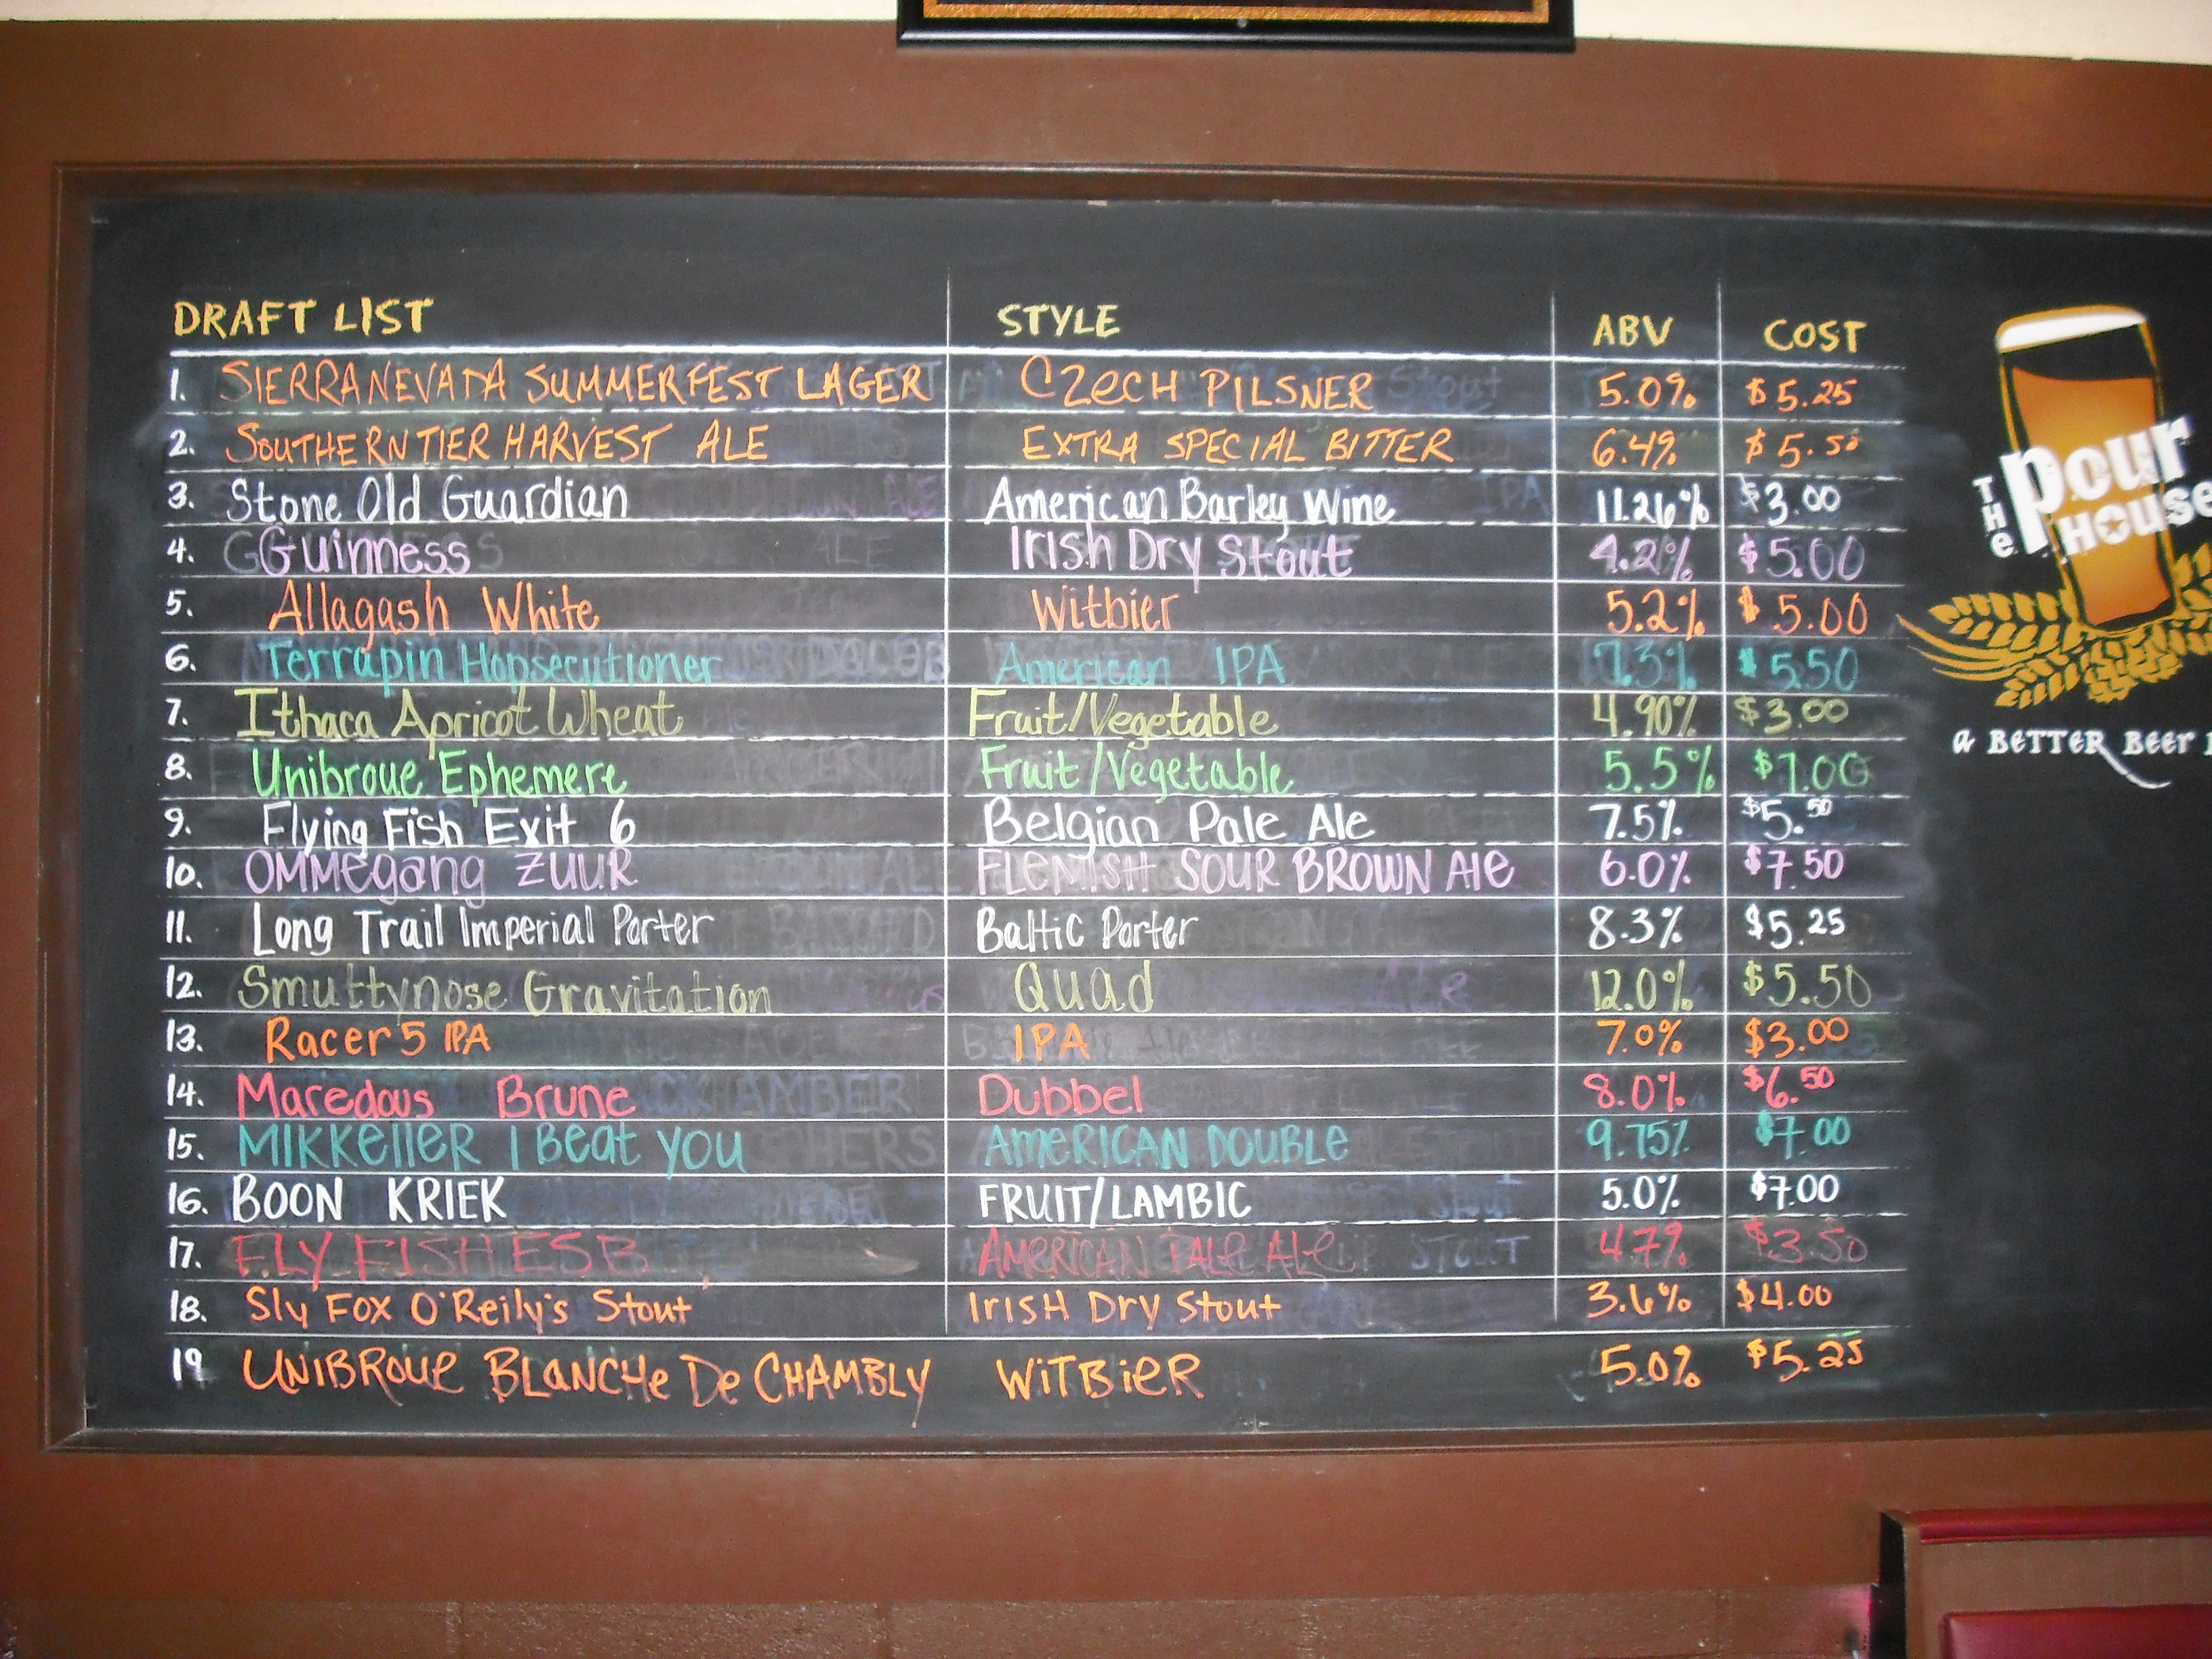 DRAFT LIST STYLE ABV COST
1. SIERRA NEVADA SUMMERFEST LAGER CZECH PILSNER 5.0% $5.25
2. SOUTHERN TIER HARVEST ALE EXTRA SPECIAL BITTER 6.4% $5.50
3. Stone Old Guardian American Barley Wine 11.26% $3.00
4. Guinness Irish Dry Stout 4.2% $5.00
5. Allagash White Witbier 5.2% $5.00
6. Terrapin Hopsecutioner American IPA 7.3% $5.50
7. Ithaca Apricot Wheat Fruit/Vegetable 4.90% $3.00
8. Unibroue Ephemere Fruit/Vegetable 5.5%
9. Flying Fish Exit 6 Belgian Pale Ale 7.5% $5.50
10. OMMEgang ZUUR FLEMISH SOUR BROWN Ale 6.0% $7.50
11. Long Trail Imperial Porter Baltic Porter 8.3% $5.25
12. Smuttynose Gravitation Quad 12.0% $5.50
13. Racer 5 IPA IPA 7.0% $3.00
14. Maredous Brune Dubbel 8.0% $6.50
15. MIKKELLER I Beat YOU AMERICAN DOUBLE 9.75% $7.00
16. BOON KRIEK FRUIT/LAMBIC 5.0% $7.00
17. FLY FISH ESB AMERICAN PALE ALE 4.7% $3.50
18. Sly Fox O'Reily's Stout Irish Dry Stout 3.6% $4.00
19 UNIBROUE BLANCHE De CHAMBLY WITBIER 5.0% $5.25
THE Pour House
a BETTER BEER